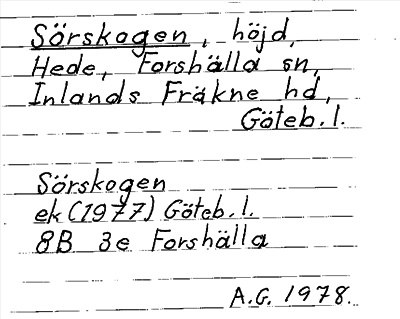 Sörskogen, höjd,
Hede, Forshälla sn,
Inlands Fräkne hd,
Göteb. l.
Sörskogen
ek (1977) Göteb. l.
8B 3e Forshälla
A.G. 1978.